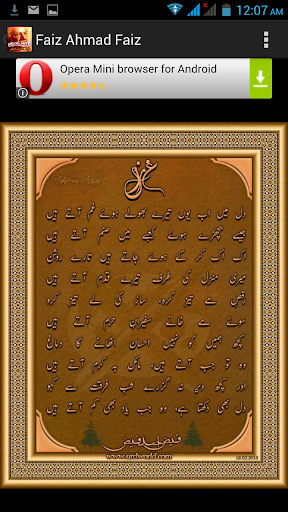 12:07 AM
Faiz Ahmad Faiz
Opera Mini browser for Android
غزل
دل میں اب یوں تیرے بھولے ہوئے غم آتے ہیں
جیسے بچھڑے ہوئے کعبے میں صنم آتے ہیں
اک اک کر کے ہوئے جاتے ہیں تارے روشن
میری منزل کی طرف تیرے قدم آتے ہیں
رقص مے تیز کرو، ساز کی لے تیز کرو
سوئے مے خانے سفیران حرم آتے ہیں
کچھ ہمیں کو نہیں احسان اٹھانے کا دماغ
وہ تو جب آتے ہیں، مائل بہ کرم آتے ہیں
اور کچھ دیر نہ گزرے شب فرقت سے کہو
دل بھی کم دکھتا ہے، وہ یاد بھی کم آتے ہیں
فیض احمد فیض
www.urduworld.com